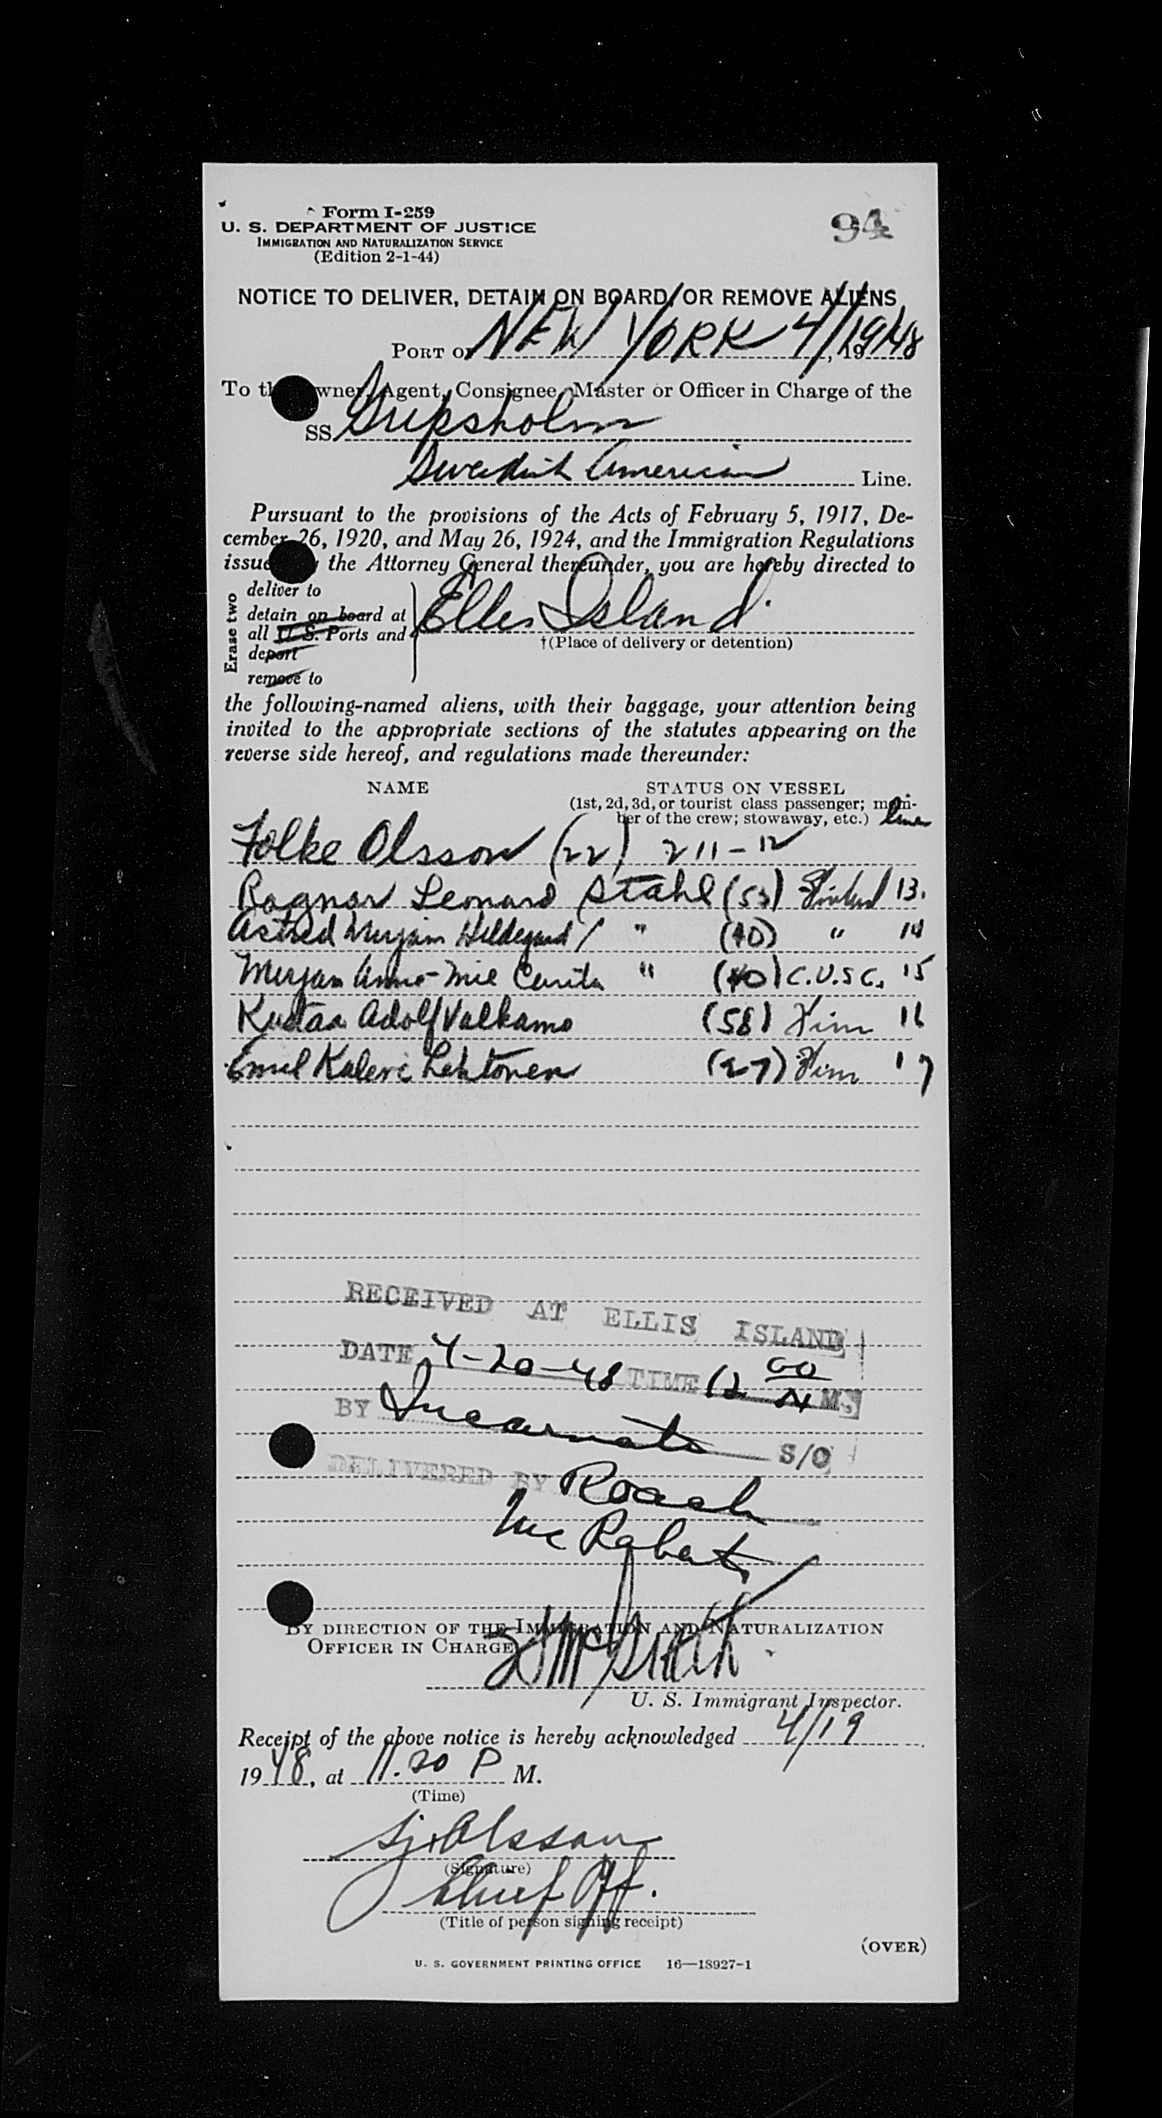 Form I-259
94
U. S. DEPARTMENT OF JUSTICE
IMMIGRATION AND NATURALIZATION SERVICE
(Edition 2-1-44)
NOTICE TO DELIVER, DETAIN ON BOARD, OR REMOVE ALIENS
PORT OF NEW YORK 4/19/48, 19
To the Owner, Agent, Consignee, Master or Officer in Charge of the
SS Gripsholm
Swedish American Line.
Pursuant to the provisions of the Acts of February 5, 1917, De-
cember 26, 1920, and May 26, 1924, and the Immigration Regulations
issued by the Attorney General thereunder, you are hereby directed to
Erase two
deliver to
detain on board at
all U. S. Ports and
deport
remove to
Ellis Island
†(Place of delivery or detention)
the following-named aliens, with their baggage, your attention being
invited to the appropriate sections of the statutes appearing on the
reverse side hereof, and regulations made thereunder:
NAME STATUS ON VESSEL
(1st, 2d, 3d, or tourist class passenger; mem-
ber of the crew; stowaway, etc.) line
Folke Olsson (22) 211-12
Ragnar Leonard Stahl (53) 13.
Astrid Mirjam Hildegard " (40) " 14
Mirjam Anne-Mie Carita " (40) C.U.S.C. 15
Kustaa Adolf Valkamo (58) Finn 16
Emil Kalervi Lehtonen (27) Finn 17
RECEIVED AT ELLIS ISLAND
DATE 4-20-48 TIME 12 00/N M.
BY Incarnato S/O
DELIVERED BY Roach
McRobert
BY DIRECTION OF THE IMMIGRATION AND NATURALIZATION
OFFICER IN CHARGE
U. S. Immigrant Inspector.
Receipt of the above notice is hereby acknowledged 4/19
1948, at 11.20 P M.
(Time)
Olsson
(Signature)
Chief Off.
(Title of person signing receipt)
(OVER)
U. S. GOVERNMENT PRINTING OFFICE 16—18927-1